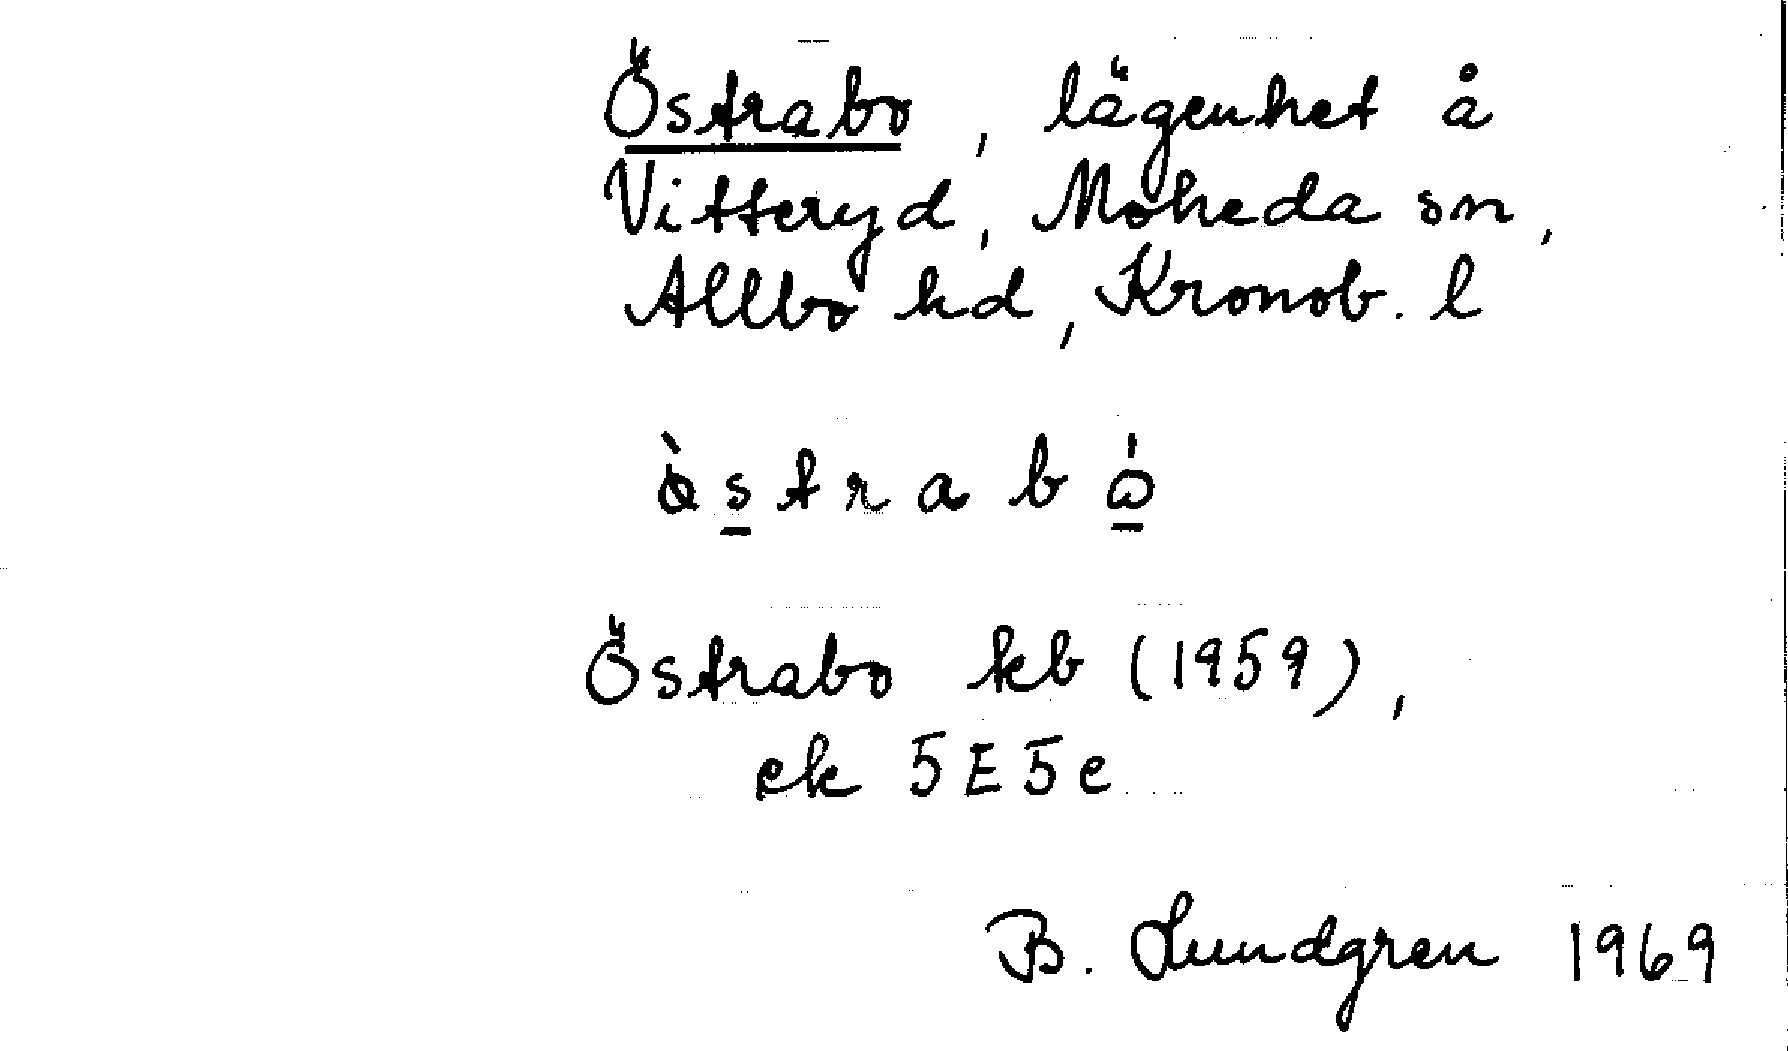 Östrabo, lägenhet å
Vitteryd, Moheda sn,
Allbo hd, Kronob. l
Östrabo kb (1959),
ek 5E5e
B. Lundgren 1969